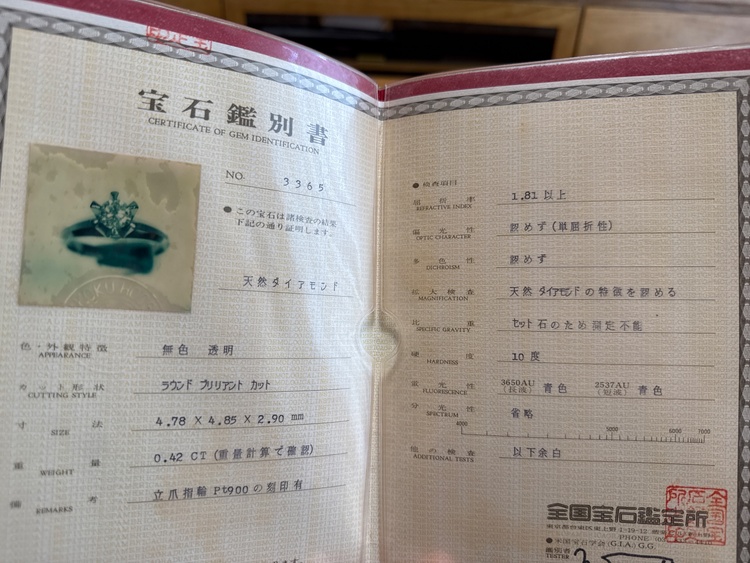 宝石鑑別書
CERTIFICATE OF GEM IDENTIFICATION
NO. 3365
● この宝石は諸検査の結果
下記の通り証明します。
天然ダイアモンド
色・外観特徴 無色 透明
APPEARANCE
カット形状 ラウンド ブリリアント カット
CUTTING STYLE
寸法 4.78 × 4.85 × 2.90 mm
SIZE
重量 0.42 CT (重量計算で確認)
WEIGHT
備考 立爪指輪 Pt900 の刻印有
REMARKS
● 検査項目
屈折率 1.81 以上
REFRACTIVE INDEX
偏光性 認めず (単屈折性)
OPTIC CHARACTER
多色性 認めず
DICHROISM
拡大検査 天然 ダイアモンド の特徴を認める
MAGNIFICATION
比重 セット 石のため測定不能
SPECIFIC GRAVITY
硬度 10 度
HARDNESS
蛍光性 3650AU (長波) 青色 2537AU (短波) 青色
FLUORESCENCE
分光性 省略
SPECTRUM
4000 5000 6000 7000
他の検査 以下余白
ADDITIONAL TESTS
全国宝石鑑定所
東京都台東区東上野 1-19-12
PHONE
● 米国宝石学会 (G.I.A.) G.G.
鑑別者
TESTER